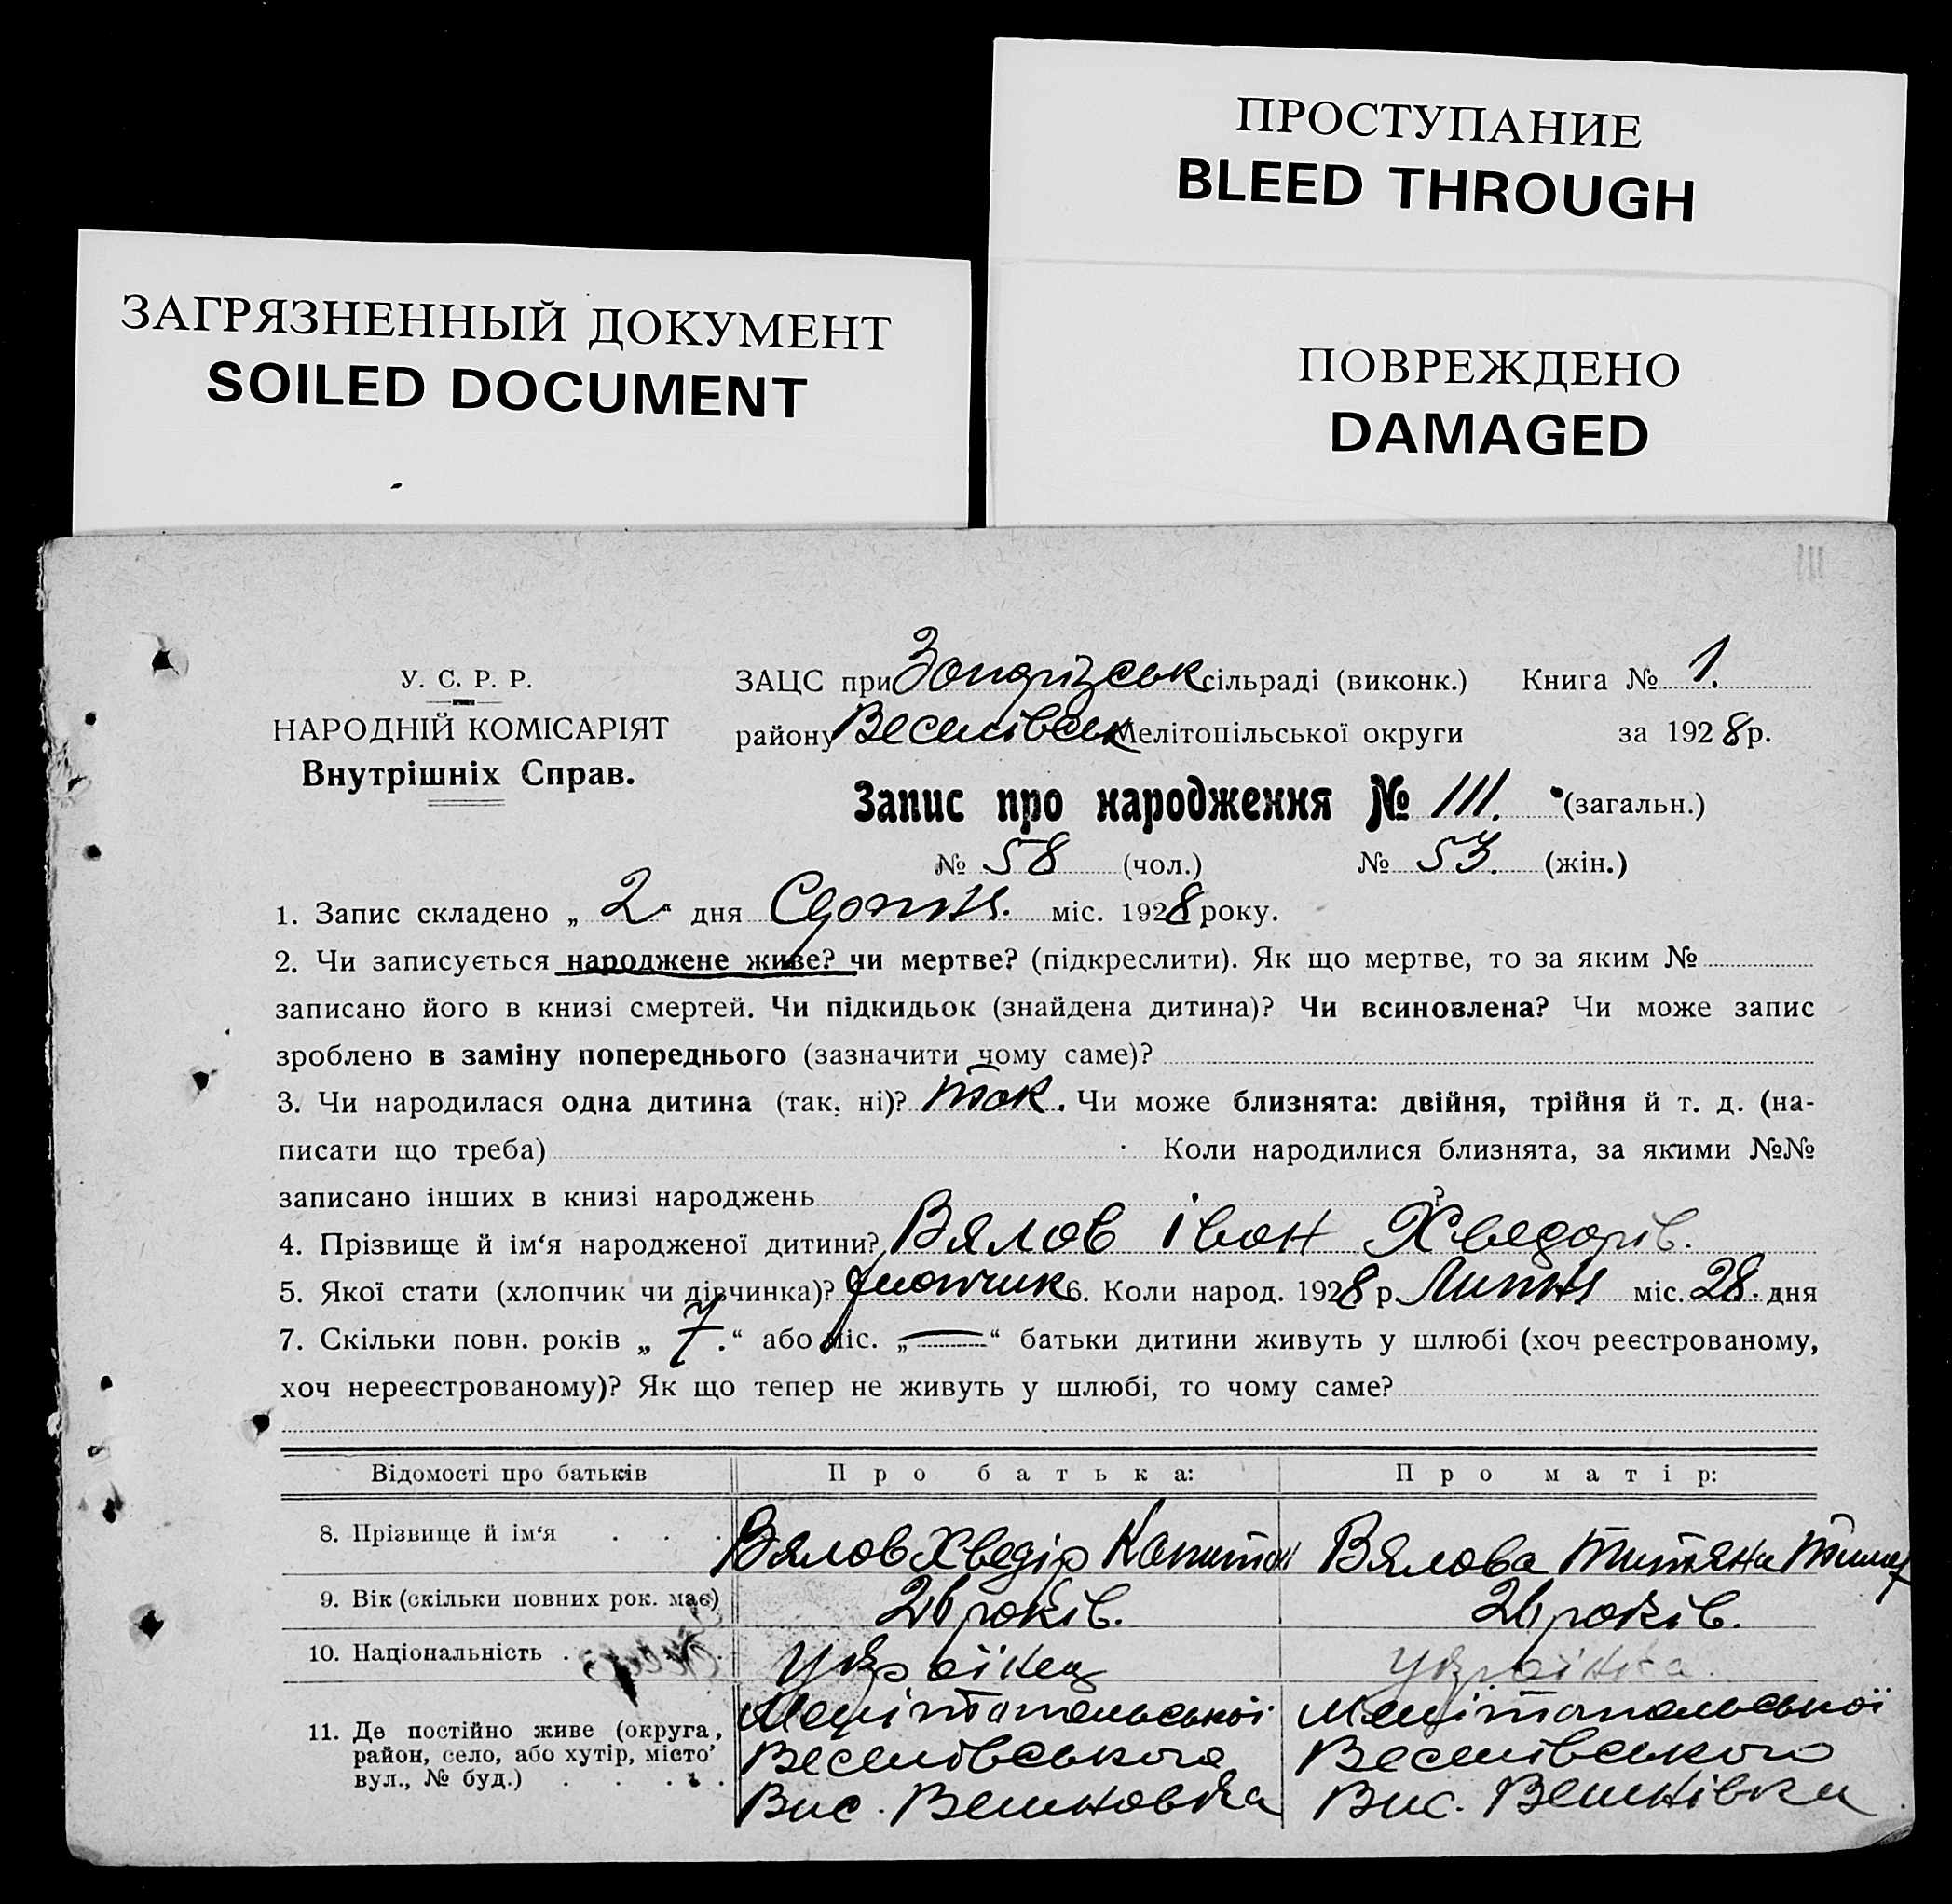 ПРОСТУПАНИЕ
BLEED THROUGH
ЗАГРЯЗНЕННЫЙ ДОКУМЕНТ
SOILED DOCUMENT
ПОВРЕЖДЕНО
DAMAGED
У. С. Р. Р.
НАРОДНІЙ КОМІСАРІЯТ
Внутрішніх Справ.
ЗАЦС при сільраді (виконк.) Книга № 1.
району Веселівськ Мелітопільської округи за 1928 р.
Запис про народження № 111. (загальн.)
№ 58 (чол.) № 53. (жін.)
1. Запис складено „ 2 “ дня Серпня. міс. 1928 року.
2. Чи записується народжене живе? чи мертве? (підкреслити). Як що мертве, то за яким №
записано його в книзі смертей. Чи підкидьок (знайдена дитина)? Чи всиновлена? Чи може запис
зроблено в заміну попереднього (зазначити чому саме)?
3. Чи народилася одна дитина (так, ні)? так. Чи може близнята: двійня, трійня й т. д. (на-
писати що треба) Коли народилися близнята, за якими №№
записано інших в книзі народжень ?
4. Прізвище й ім‘я народженої дитини? Вялов Іван Хведорів.
5. Якої стати (хлопчик чи дівчинка)? хлопчик 6. Коли народ. 1928 р. Липня міс. 28. дня
7. Скільки повн. років „ 7. “ або міс. „ — “ батьки дитини живуть у шлюбі (хоч реєстрованому,
хоч нереєстрованому)? Як що тепер не живуть у шлюбі, то чому саме?
Відомості про батьків Про батька: Про матір:
8. Прізвище й ім‘я . . . Вялов Хведір Капитон Вялова Титяна Тимоф
9. Вік (скільки повних рок. має) 26 років. 26 років.
10. Національність . Українец Українка.
11. Де постійно живе (округа, район, село, або хутір, місто, вул., № буд.) . . . .
Мелітопольської Мелітопольської
Веселівського Веселівського
Вис. Вешновка Вис. Вешнівка